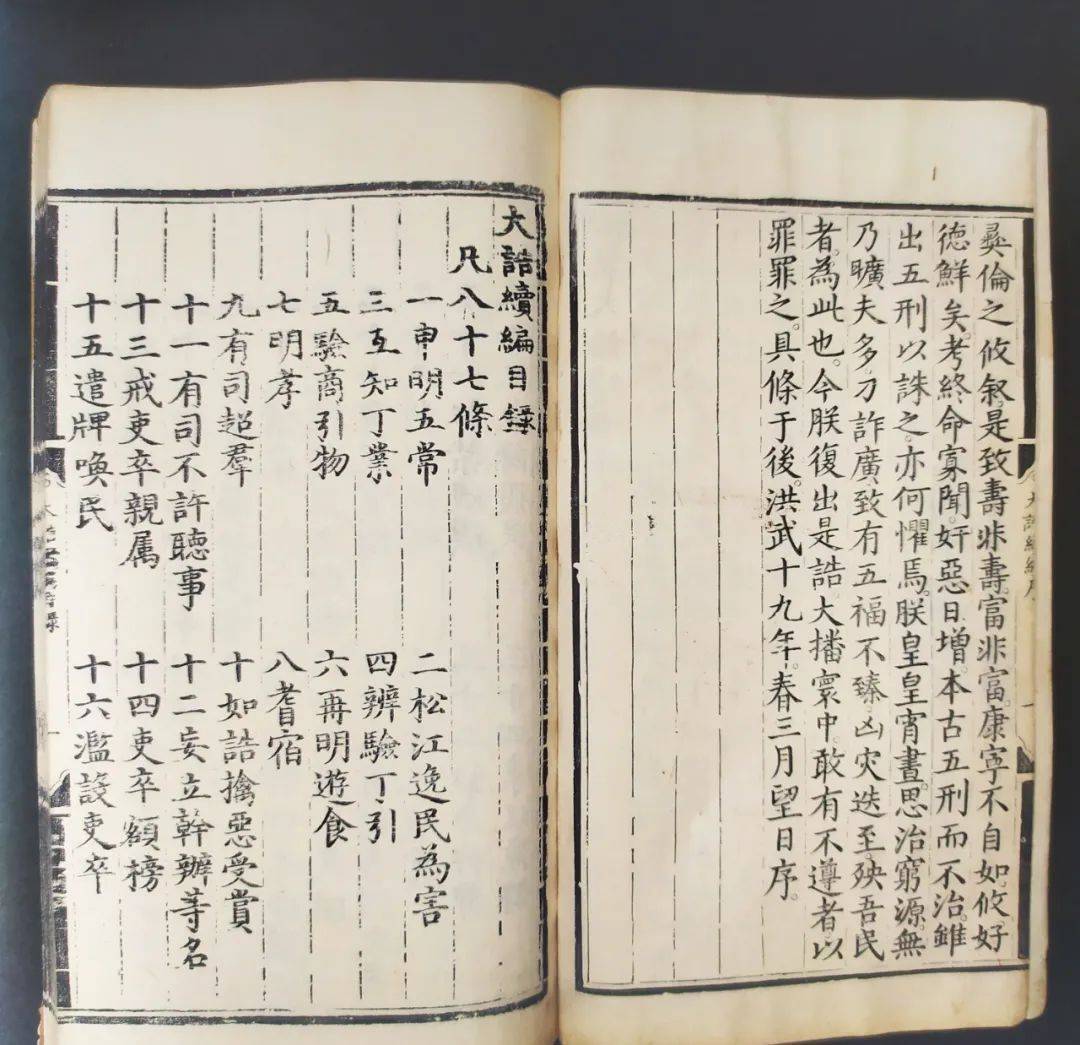 彝倫之攸敘是致壽非壽富非富康寧不自如攸好
德鮮矣考終命寡聞奸惡日增本古五刑而不治雖
出五刑以誅之亦何懼焉朕皇皇宵晝思治窮源無
乃曠夫多刁詐廣致有五福不臻凶災迭至殃吾民
者為此也今朕復出是誥大播寰中敢有不遵者以
罪罪之具條于後洪武十九年春三月望日序
大誥續編序
一
大誥續編目錄
凡八十七條
一申明五常 二松江逸民為害
三互知丁業 四辨驗丁引
五驗商引物 六再明遊食
七明孝 八耆宿
九有司超羣 十如誥擒惡受賞
十一有司不許聽事 十二妄立幹辦等名
十三戒吏卒親属 十四吏卒額榜
十五遣牌喚民 十六濫設吏卒
一